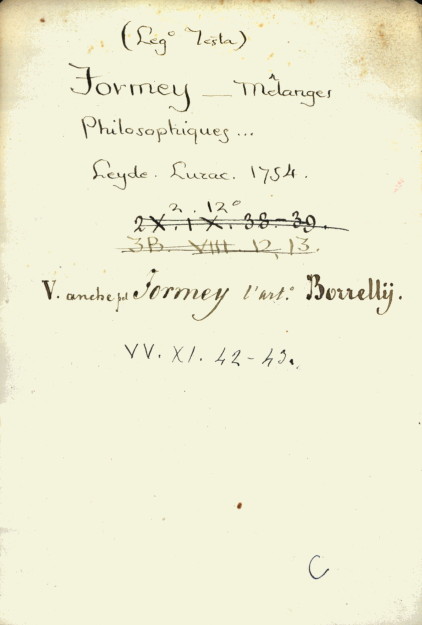 (Leg.º Testa)
Formey — Mêlanges
Philosophiques...
Leyde. Luzac. 1754.
2. 12º
2X. 1X. 38-39.
3B. VIII. 12, 13.
V. anche pel Formey l'art.º Borrellij.
VV. XI. 42-43.
C